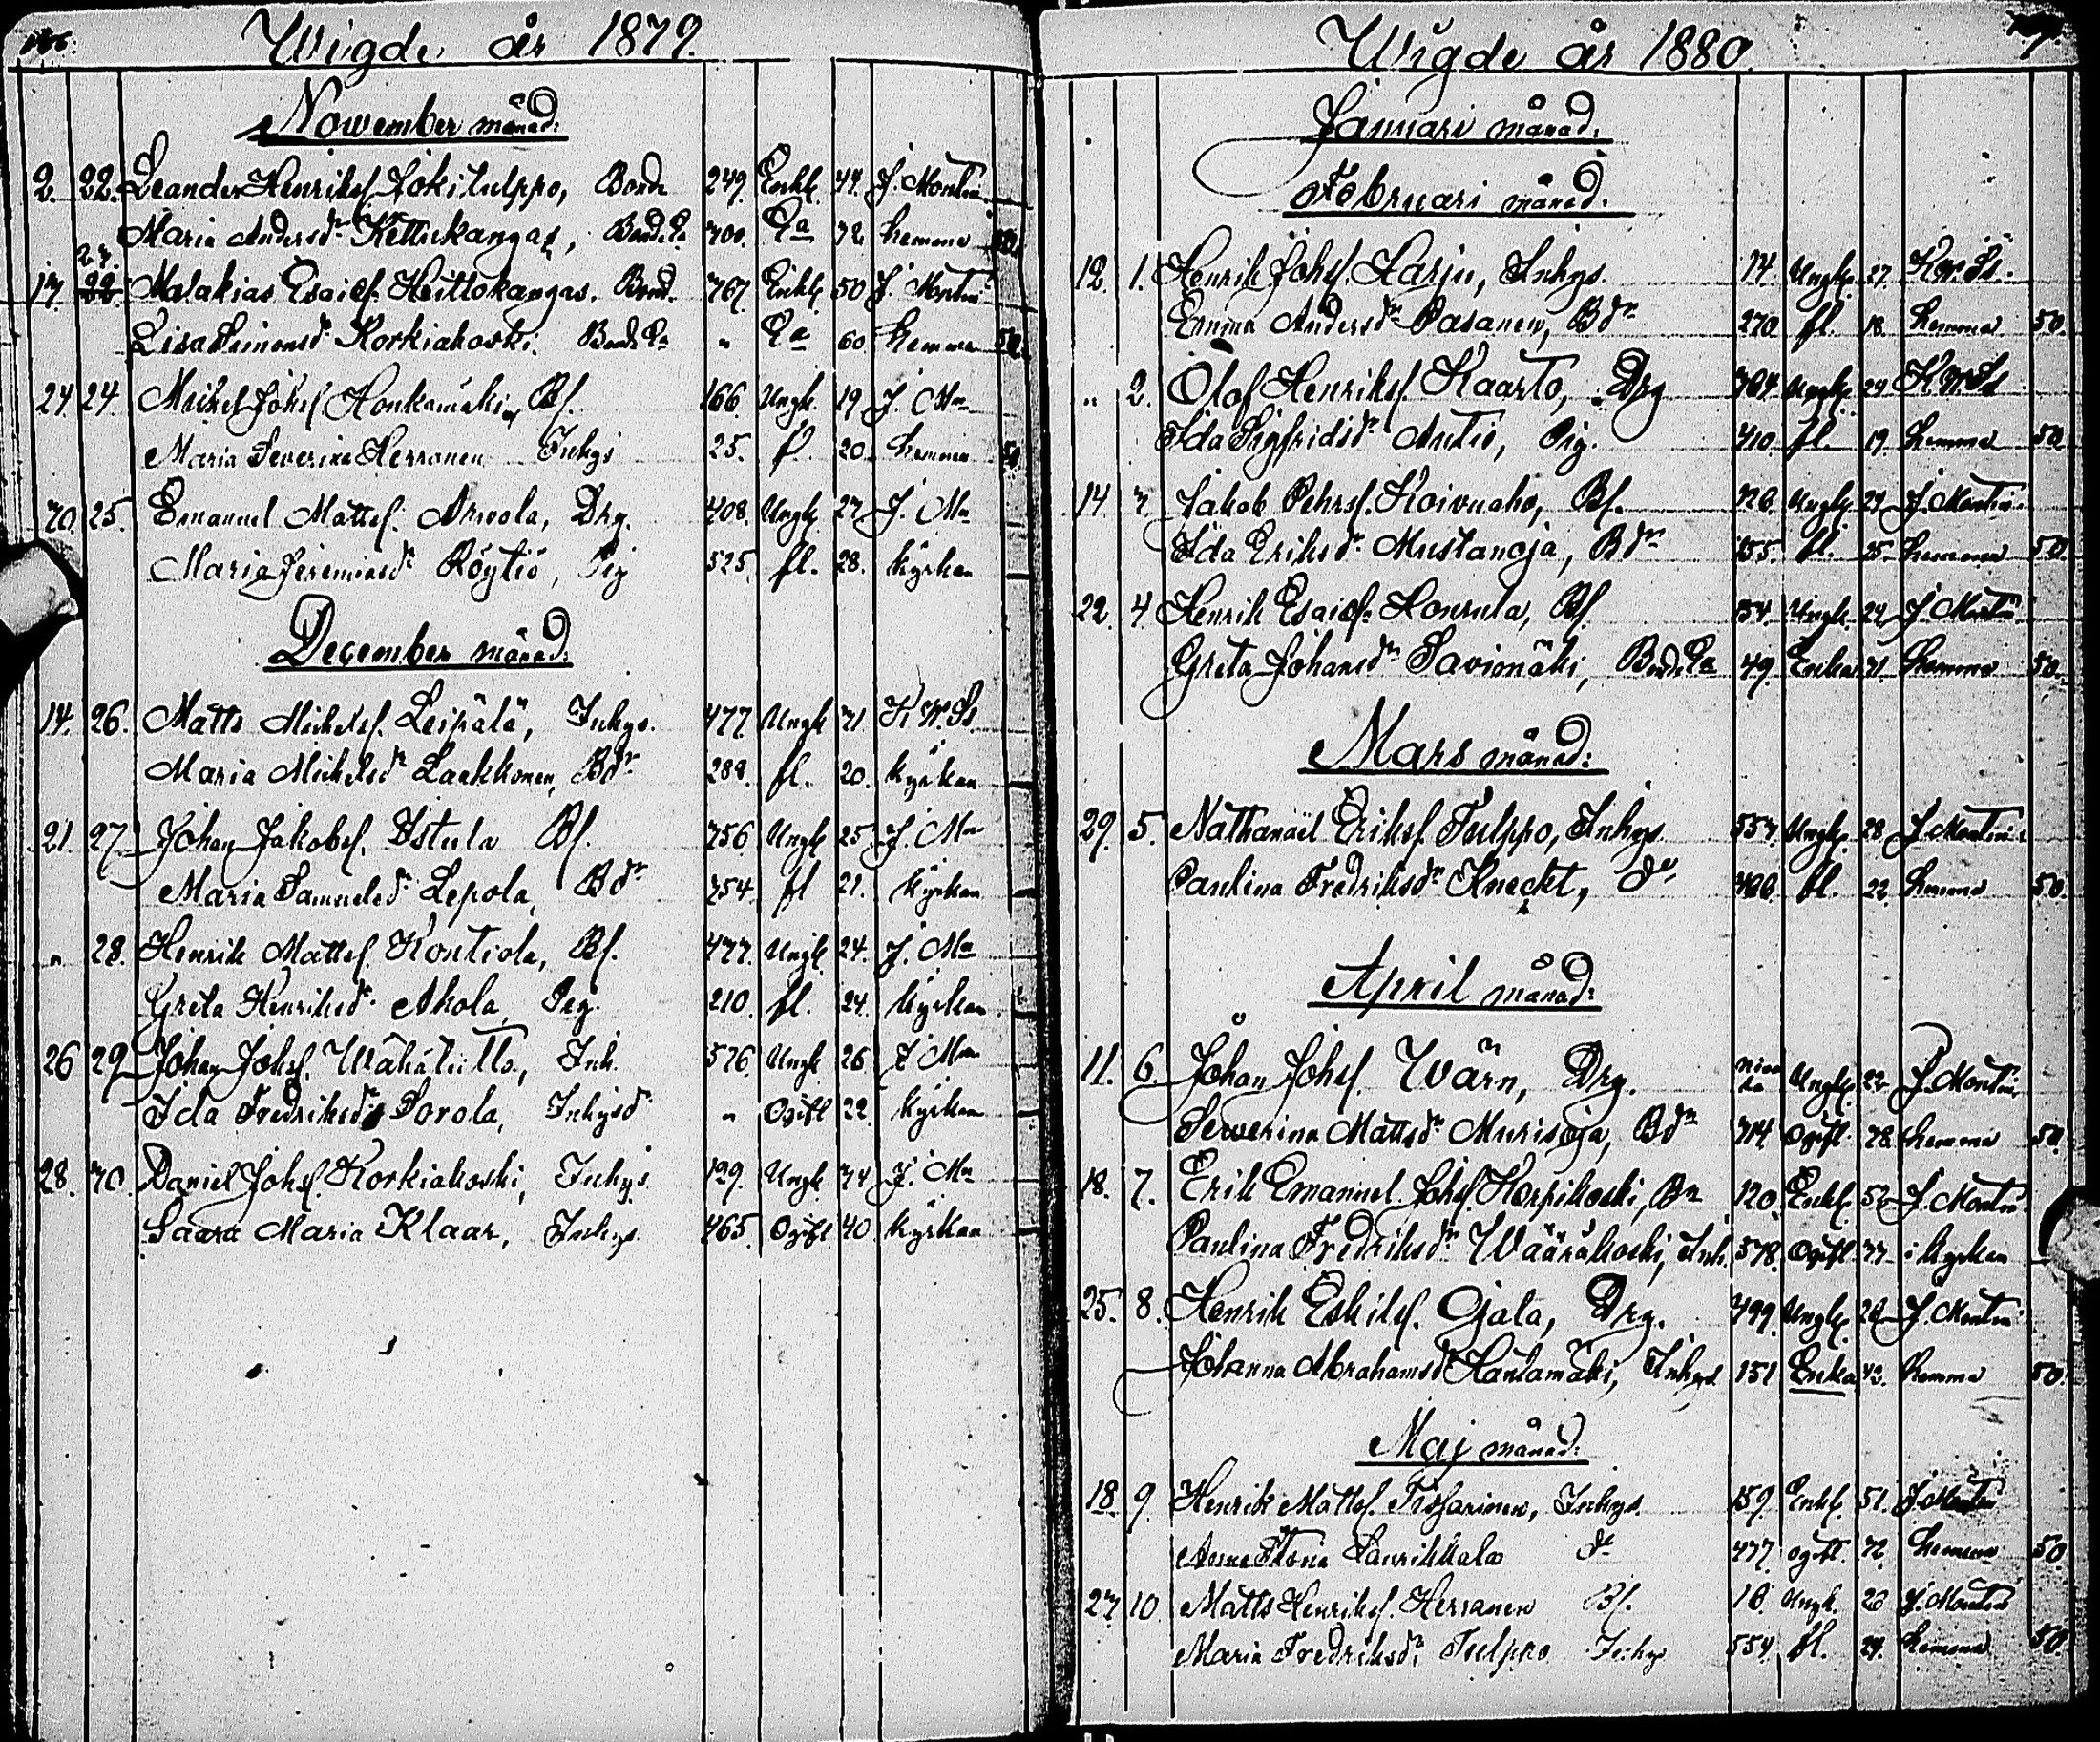 Wigde år 1879.
November månad:
2. 22. Leander Henriksf. Jokitulppo, Bonde 249. Enkl. 44. J. Montin
Maria Andersdr Kettukangas, Bonde Ea 300. Ea 32 hemma 50.
23.
17. 22 Malakias Esaiasf. Heittokangas. Bond. 367. Enkl. 50 J. Montin
Lisa Simonsdr Korkiakoski. Bonde Ea " Ea 60. hemma 50.
24 24. Mickel Johsf Honkamäki, Bf. 166. Ungk. 19 J. Mn
Maria Severina Herranen Inhys 25. fl. 20. hemma 50
30. 25. Emanuel Mattsf. Arvola, Drg. 408. Ungk. 27 J. Mn
Maria Jeremiasdr Röytiö, Pig 525. fl. 28. kyrkan
December månad:
14. 26. Matts Mickelsf. Leipälä, Inhys. 477 Ungk 31. K. W. Ss.
Maria Mickelsdr Laakkonen, Bdr 289. fl. 20. kyrkan
21. 27. Johan Jakobsf. Ystula Bf. 356. Ungk 25. J. Mn
Maria Samuelsdr Lepola, Bdr 354. fl 21. kyrkan
" 28. Henrik Mattsf. Kontiola, Bf. 477. Ungk. 24. J. Mn
Greta Henriksdr. Akola, Pig. 210. fl. 24. kyrkan
26 29 Johan Johsf. Wähätiitto, Inh. 576. Ungk 26. J. Mn
Ida Fredriksdr Sorola, Inhysd " Ogift 22. kyrkan
28. 30. Daniel Johsf. Korkiakoski, Inhys. 129. Ungk. 34 J. Mn
Saara Maria Klaar, Inhys. 465. Ogift 40 kyrkan
Wigde år 1880.
Januari månad:
Februari månad:
12. 1. Henrik Johsf. Harju, Inhys. 14. Ungk. 27. K. W. Ss.
Emma Andersdr Pasanen, Bdr 270. fl. 18. hemma 50.
" 2. Olof Henriksf. Kaarto, Drg 304. Ungk. 24 K. W. Ss
Ida Sigfridsdr Antio, Pig. 410. fl. 19. hemma 50
14. 3. Jakob Pehrsf. Koivuaho, Bf. 126. Ungk. 24 J. Montin.
Ida Eriksdr Mustanoja, Bdr 155. fl. 25. hemma 50
22. 4 Henrik Esaiasf. Honsula, Bf. 154. Ungk. 24 J. Montin.
Greta Johansdr Savimäki, Bonde Ea 49. Enka 31. hemma 50.
Mars månad:
29. 5. Nathanaël Eriksf. Tulppo, Inhys. 553. Ungk. 28 J. Montin.
Paulina Fredriksdr Kneckt, do. 400. fl. 22. hemma 50.
April månad:
11. 6. Johan Johsf. Wärn, Drg. Niva
la Ungk. 22 J. Montin
Severina Mattsdr Murisoja, Bdr 314. Ogift. 28. hemma 50.
18. 7. Erik Emanuel Johsf. Korpikoski, Bn 120. Enkl. 52 J. Montin.
Paulina Fredriksdr Wääräkoski, Inh. 578. Ogift. 37. i kyrkan
25. 8. Henrik Eskilsf. Ojala, Drg. 499. Ungk. 28 J. Montin
Johanna Abrahamsdr Hantamäki, Inhys 151 Enka 42. hemma 50.
Maj månad:
18 9 Henrik Mattsf. Tissarinen, Inhys. 159. Enkl. 51. J. Montin
Anna Stina Saurikkala do 477. ogift. 32. hemma 50
27 10. Matts Henriksf. Herranen Bf. 18. Ungk. 23 J. Montin
Maria Fredriksdr Tulppo Inhys 554. fl. 24. hemma 50.